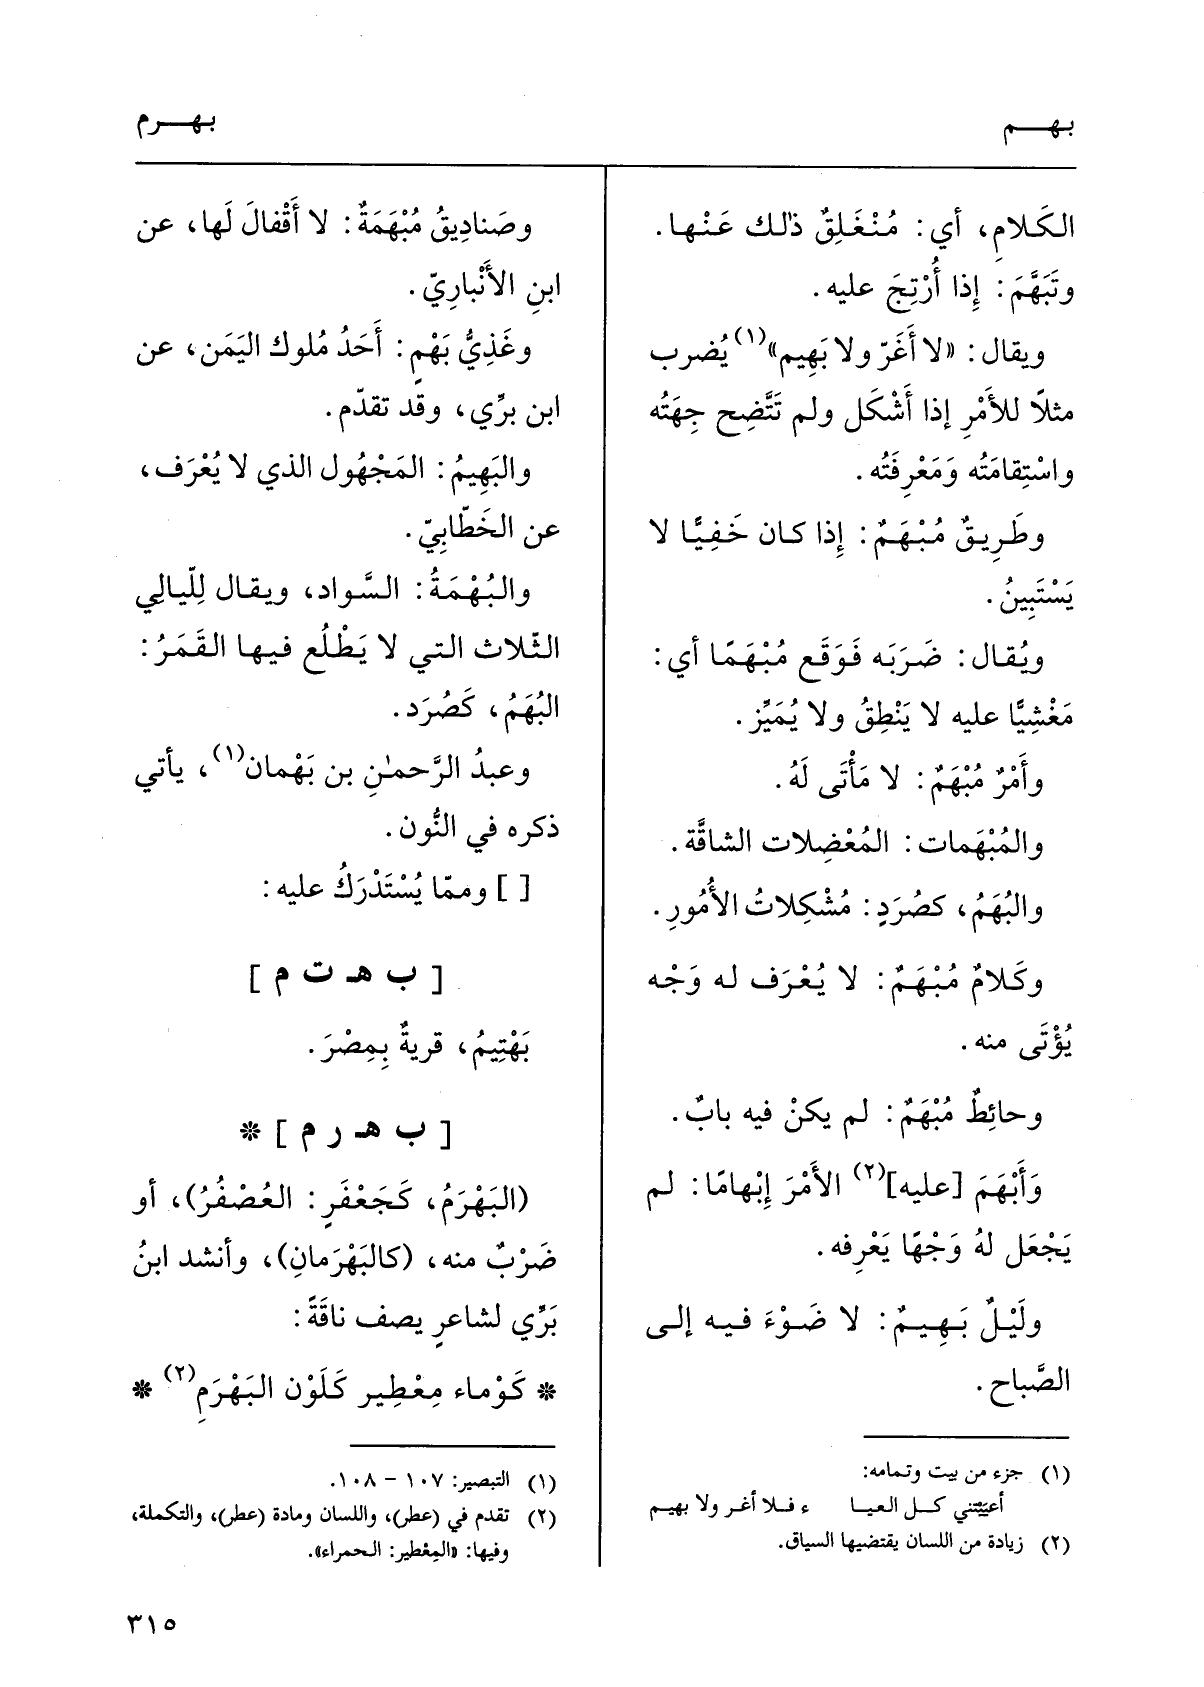 بهـــم
بهـــرم
الكَلامِ، أي: مُنْغَلِقٌ ذٰلك عَنْها.
وتَبَهَّمَ: إِذا أُرْتِجَ عليه.
ويقال: «لا أَغَرّ ولا بَهِيم»(١) يُضرب
مثلًا للأَمْرِ إذا أَشْكَل ولم تَتَّضِح جِهَتُه
واسْتِقامَتُه وَمَعْرِفَتُه.
وطَرِيقٌ مُبْهَمٌ: إِذا كان خَفِيًّا لا
يَسْتَبِينُ.
ويُقال: ضَرَبَه فَوَقَع مُبْهَمًا أي:
مَغْشِيًّا عليه لا يَنْطِقُ ولا يُمَيِّز.
وأَمْرٌ مُبْهَمٌ: لا مَأْتَى لَهُ.
والمُبْهَمات: المُعْضِلات الشاقَّة.
والبُهَمُ، كصُرَدٍ: مُشْكِلاتُ الأُمُورِ.
وكَلامٌ مُبْهَمٌ: لا يُعْرَف له وَجْه
يُؤْتَى منه.
وحائِطٌ مُبْهَمٌ: لم يكنْ فيه بابٌ.
وَأَبْهَمَ [عليه](٢) الأَمْرَ إِبْهامًا: لم
يَجْعَل لهُ وَجْهًا يَعْرِفه.
ولَيْلٌ بَهِيمٌ: لا ضَوْءَ فيه إلى
الصَّباح.
(١) جزء من بيت وتمامه:
أعييتني كـل العيـا ء فـلا أغـر ولا بهيـم
(٢) زيادة من اللسان يقتضيها السياق.
وصَنادِيقُ مُبْهَمَةٌ: لا أَقْفالَ لَها، عن
ابنِ الأَنْبارِيّ.
وغَذِيُّ بَهْمٍ: أَحَدُ مُلوك اليَمَن، عن
ابن برِّي، وقد تقدّم.
والبَهِيمُ: المَجْهُول الذي لا يُعْرَف،
عن الخَطّابِيّ.
والبُهْمَةُ: السَّواد، ويقال لِلّيالِي
الثّلاث التي لا يَطْلُع فيها القَمَرُ:
البُهَمُ، كَصُرَد.
وعبدُ الرَّحمٰنِ بن بَهْمان(١)، يأتي
ذكره في النُّون.
[ ] وممّا يُسْتَدْرَكُ عليه:
[ ب هـ ت م ]
بَهْتِيمُ، قريةٌ بِمِصْرَ.
[ ب هـ ر م ] *
(البَهْرَمُ، كَجَعْفَرٍ: العُصْفُرُ)، أو
ضَرْبٌ منه، (كالبَهْرَمانِ)، وأنشد ابنُ
بَرِّي لشاعرٍ يصف ناقَةً:
* كَوْماء مِعْطِير كَلَوْن البَهْرَمِ(٢) *
(١) التبصير: ١٠٧ – ١٠٨.
(٢) تقدم في (عطر)، واللسان ومادة (عطر)، والتكملة،
وفيها: «المِعْطير: الحمراء».
٣١٥